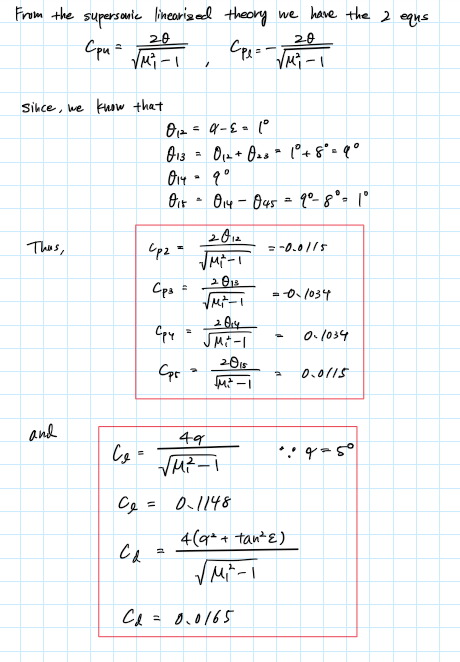 From the supersonic linearized theory we have the 2 eqns
Cpu = 2θ / √(M₁² - 1) , Cpl = - 2θ / √(M₁² - 1)
Since, we know that
θ12 = α - ε = 1°
θ13 = θ12 + θ23 = 1° + 8° = 9°
θ14 = 9°
θ15 = θ14 - θ45 = 9° - 8° = 1°
Thus,
Cp2 = 2θ12 / √(M₁² - 1) = -0.0115
Cp3 = 2θ13 / √(M₁² - 1) = -0.1034
Cp4 = 2θ14 / √(M₁² - 1) = 0.1034
Cp5 = 2θ15 / √(M₁² - 1) = 0.0115
and
Cl = 4α / √(M₁² - 1) ∵ α = 5°
Cl = 0.1148
Cd = 4(α² + tan²ε) / √(M₁² - 1)
Cd = 0.0165